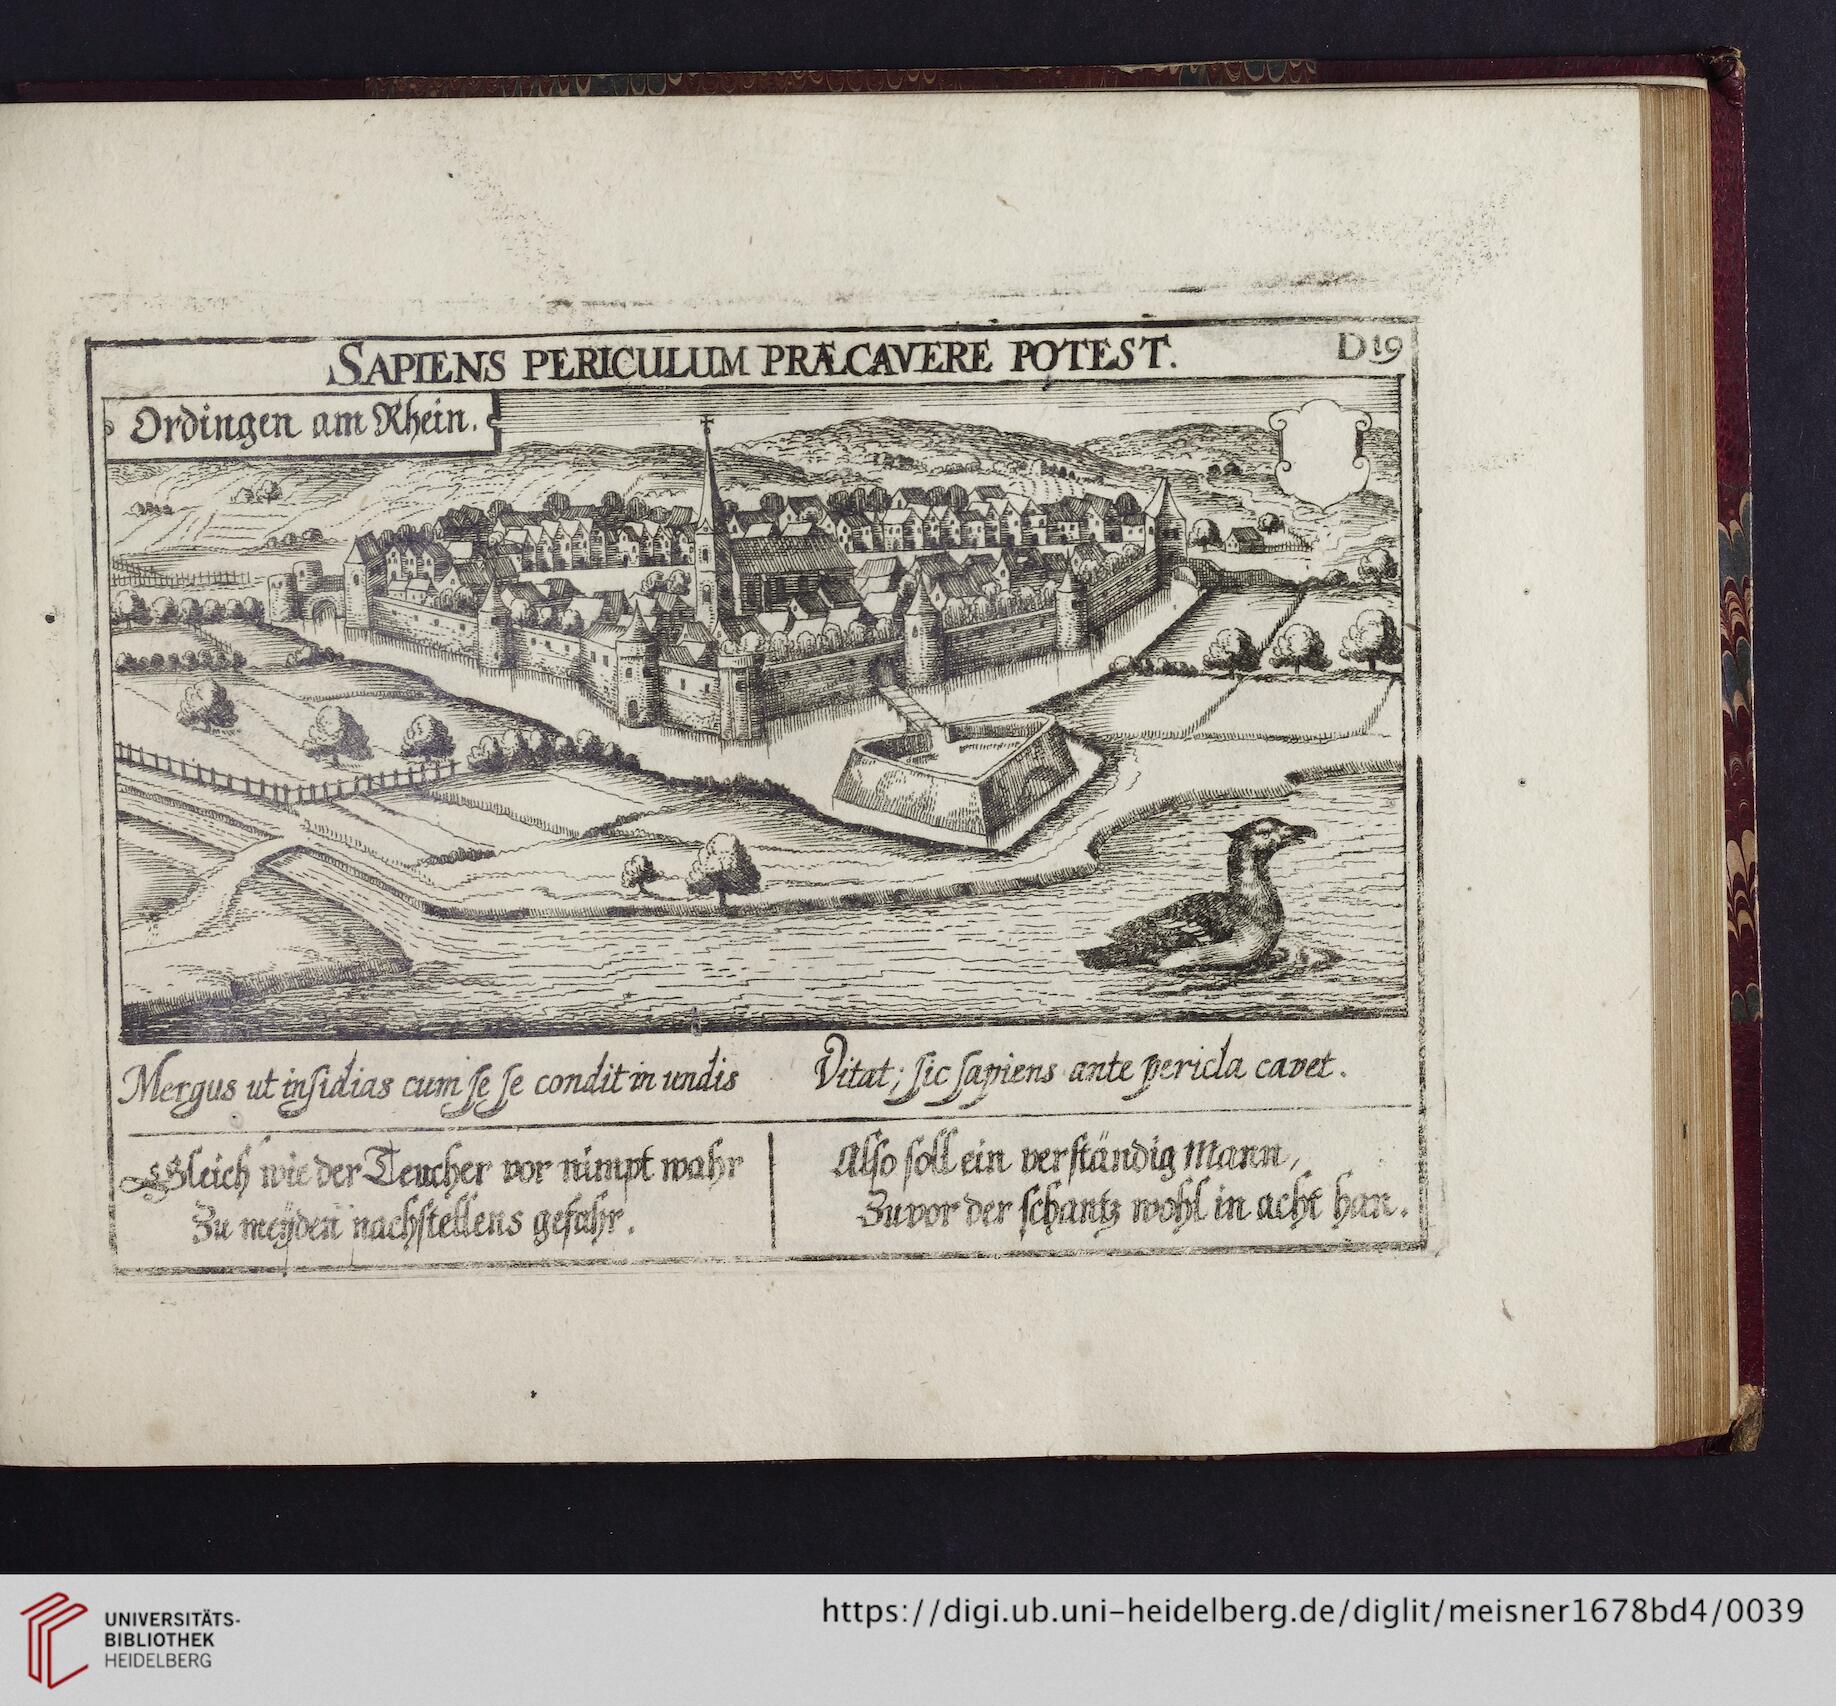 SAPIENS PERICULUM PRÆCAVERE POTEST.
D19
Ordingen am Rhein.
Mergus ut inſidias cum ſe ſe condit in undis
Vitat; ſic ſapiens ante pericla cavet.
Gleich wie der Teucher vor nimpt wahr
Zu meÿden nachſtellens gefahr.
Alſo ſoll ein verſtändig Mann,
Zuvor der ſchantz wohl in acht han.
UNIVERSITÄTS-
BIBLIOTHEK
HEIDELBERG
https://digi.ub.uni-heidelberg.de/diglit/meisner1678bd4/0039